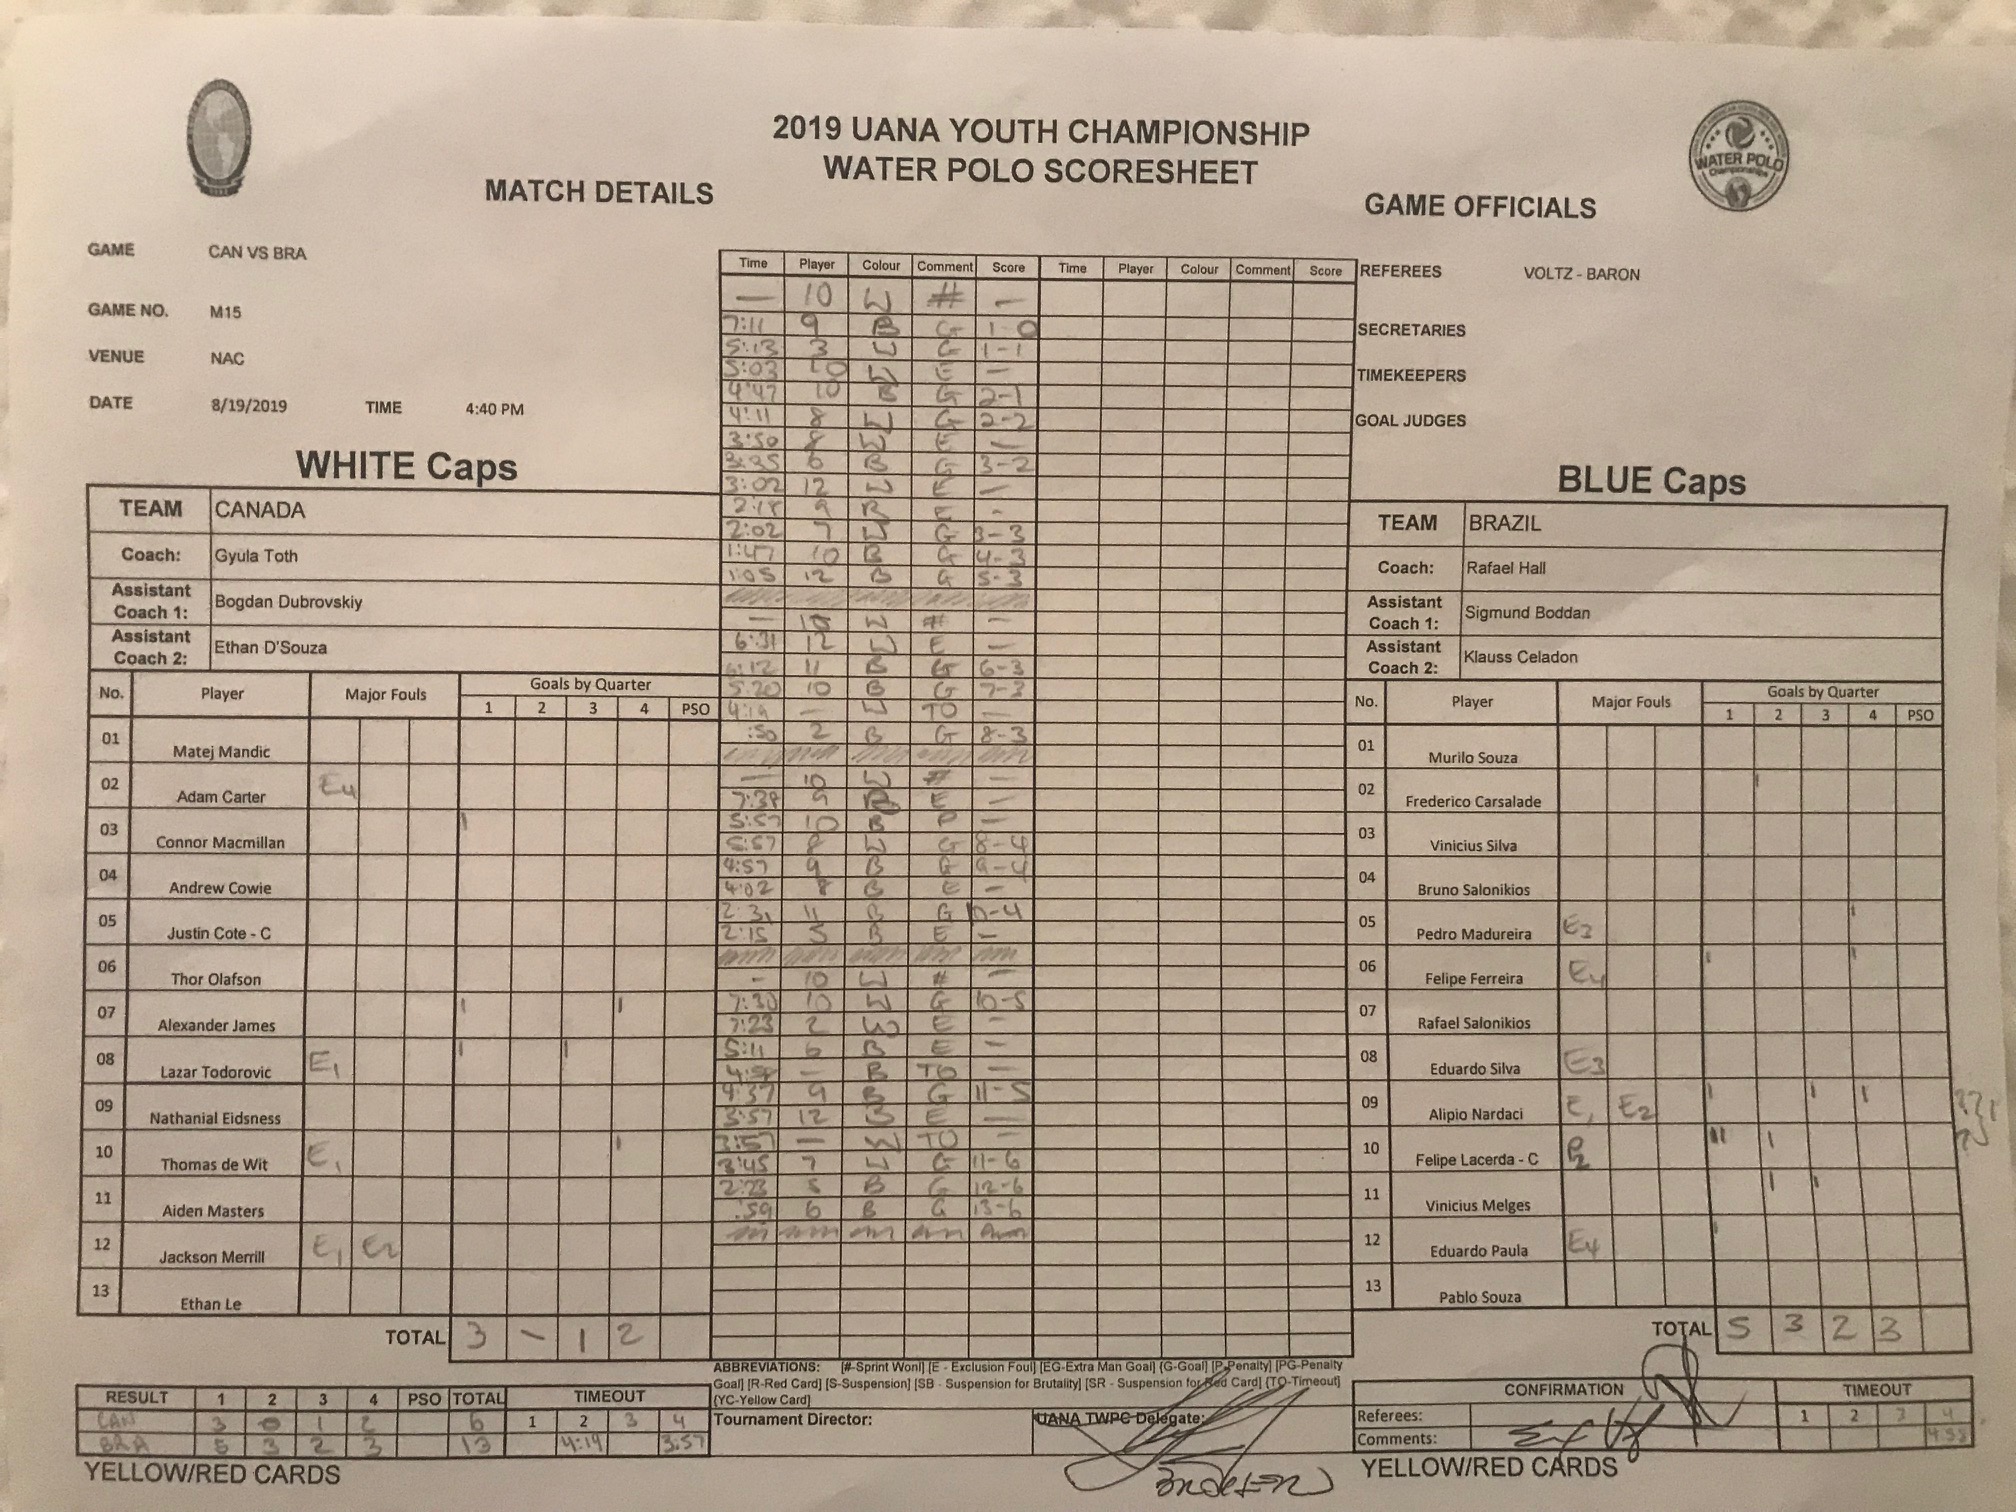 2019 UANA YOUTH CHAMPIONSHIP
WATER POLO SCORESHEET
WATER POLO
Championships
MATCH DETAILS
GAME OFFICIALS
GAME CAN VS BRA
GAME NO. M15
VENUE NAC
DATE 8/19/2019 TIME 4:40 PM
REFEREES VOLTZ - BARON
SECRETARIES
TIMEKEEPERS
GOAL JUDGES
WHITE Caps
TEAM CANADA
Coach: Gyula Toth
Assistant Coach 1: Bogdan Dubrovskiy
Assistant Coach 2: Ethan D'Souza
No. Player Major Fouls Goals by Quarter
1 2 3 4 PSO
01 Matej Mandic
02 Adam Carter E4
03 Connor Macmillan I
04 Andrew Cowie
05 Justin Cote - C
06 Thor Olafson
07 Alexander James I I
08 Lazar Todorovic E1 I I
09 Nathanial Eidsness
10 Thomas de Wit E1 I
11 Aiden Masters
12 Jackson Merrill E1 E2
13 Ethan Le
TOTAL 3 - 1 2
RESULT 1 2 3 4 PSO TOTAL TIMEOUT
1 2 3 4
CAN 3 0 1 2 6
BRA 5 3 2 3 13 4:19 3:57
YELLOW/RED CARDS
Time Player Colour Comment Score Time Player Colour Comment Score
— 10 W # —
7:11 9 B G 1-0
5:13 3 W G 1-1
5:03 10 W E —
4:47 10 B G 2-1
4:11 8 W G 2-2
3:50 8 W E —
3:35 6 B G 3-2
3:02 12 W E —
9 B E -
2:02 7 W G 3-3
1:47 10 B G 4-3
1:05 12 B G 5-3
— W # —
6:31 12 W E —
6:12 11 B G 6-3
5:20 10 B G 7-3
4:19 — W TO —
:50 2 B G 8-3
— 10 W # —
7:38 9 B E —
5:57 10 B P —
5:57 8 W G 8-4
4:57 9 B G 9-4
4:02 8 B E —
2:31 11 B G 10-4
2:15 5 B E —
- 10 W # —
7:30 10 W G 10-5
7:23 2 W E —
5:11 6 B E —
4:58 — B TO —
4:37 9 B G 11-5
3:57 12 B E —
3:57 — W TO —
3:45 7 W G 11-6
2:23 5 B G 12-6
:59 6 B G 13-6
ABBREVIATIONS: [#-Sprint Won] [E - Exclusion Foul] [EG-Extra Man Goal] [G-Goal] [P-Penalty] [PG-Penalty
Goal] [R-Red Card] [S-Suspension] [SB - Suspension for Brutality] [SR - Suspension for Red Card] [TO-Timeout]
[YC-Yellow Card]
Tournament Director:
UANA TWPC Delegate:
BLUE Caps
TEAM BRAZIL
Coach: Rafael Hall
Assistant Coach 1: Sigmund Boddan
Assistant Coach 2: Klauss Celadon
No. Player Major Fouls Goals by Quarter
1 2 3 4 PSO
01 Murilo Souza
02 Frederico Carsalade I
03 Vinicius Silva
04 Bruno Salonikios
05 Pedro Madureira E3 I
06 Felipe Ferreira E4 I I
07 Rafael Salonikios
08 Eduardo Silva E3
09 Alipio Nardaci E1 E2 I I I
10 Felipe Lacerda - C P2 II I
11 Vinicius Melges I I
12 Eduardo Paula E4 I
13 Pablo Souza
TOTAL 5 3 2 3
CONFIRMATION TIMEOUT
Referees: 1 2 3 4
Comments: 4:58
YELLOW/RED CARDS